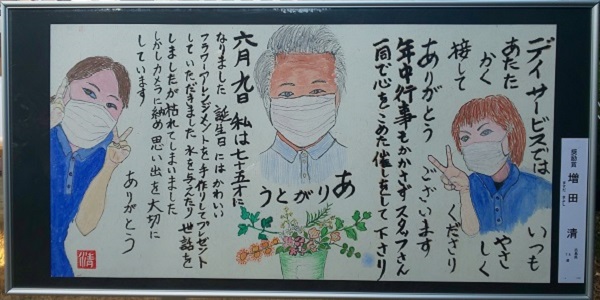 デイサービスでは いつも
あたたかく やさしく
接して くださり
ありがとう ございます
年中行事もかかさず スタッフさん
一同で心をこめた催しをして下さり
ありがとう
六月九日 私は七十五才に
なりました 誕生日には かわいい
フラワーアーレンジメントを手作りしてプレゼント
していただきました 水を与えたり世話を
しましたが枯れてしまいました
しかしカメラに納め思い出を大切に
しています
ありがとう
清
奨励賞
増田 清